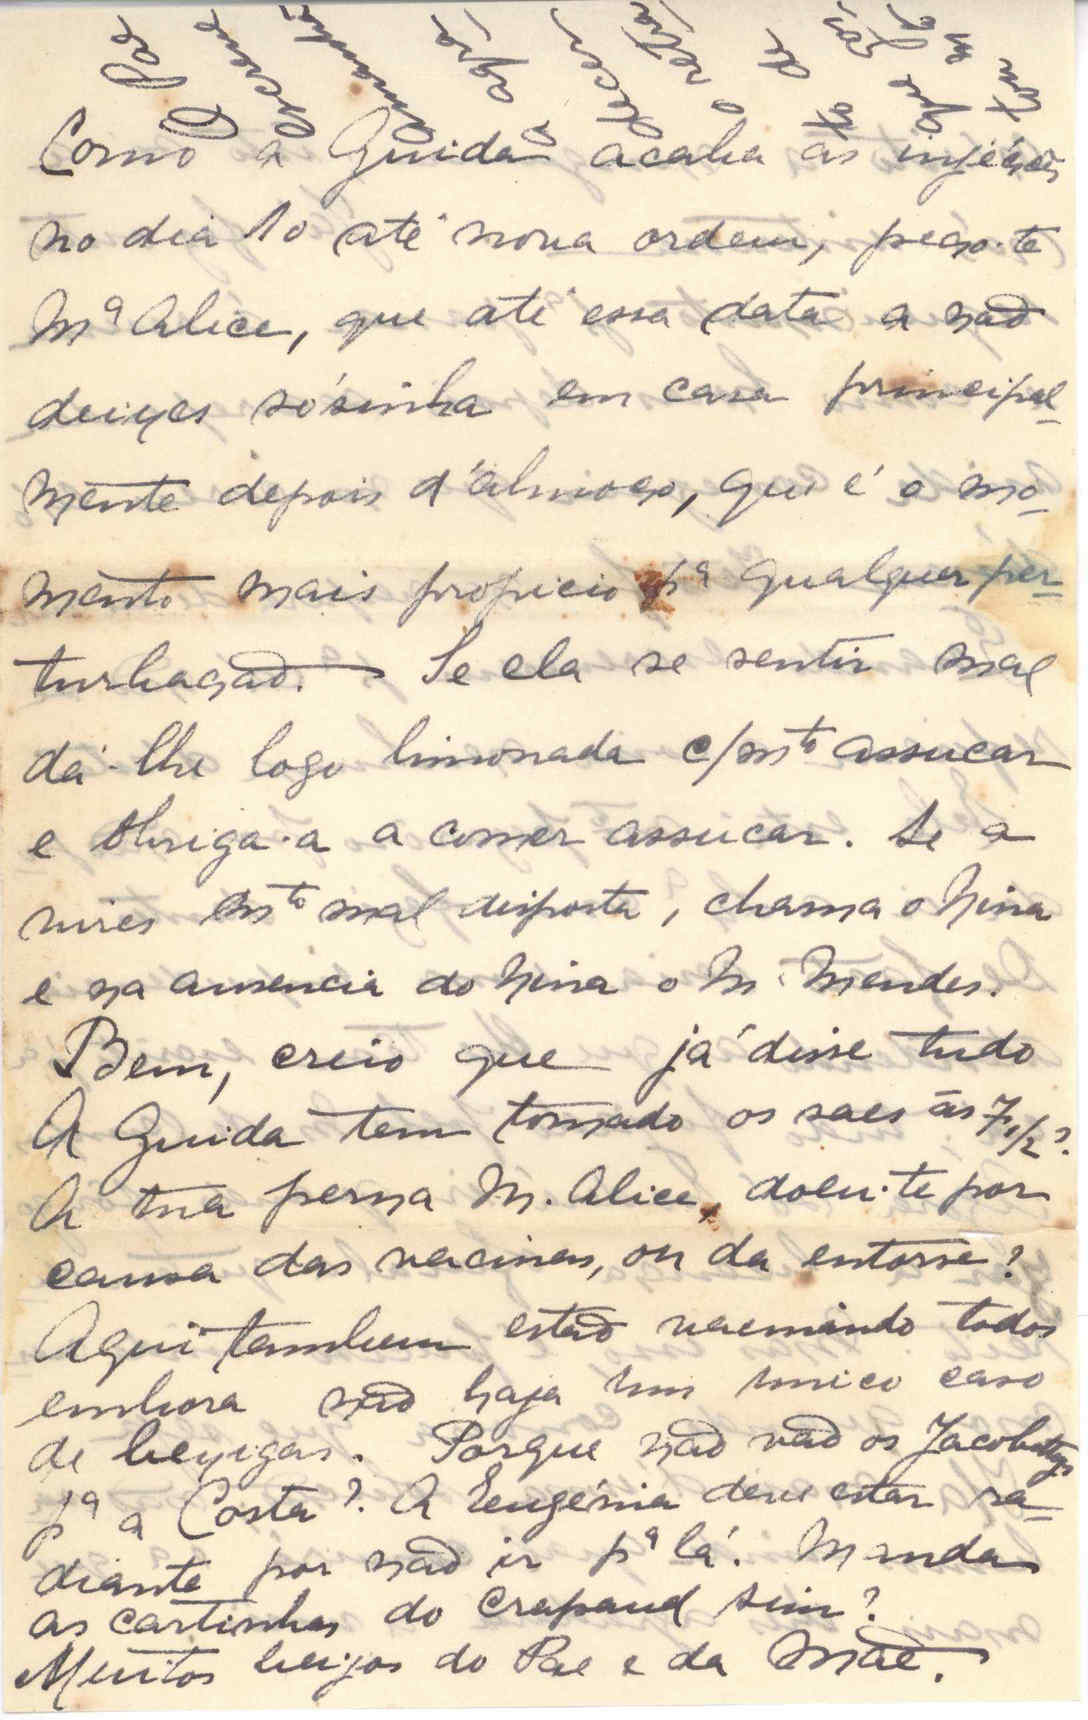 Como a Guida acaba as injéções
no dia 10 até nova ordem, peço-te
Mª Alice, que até essa data a não
deixes sósinha em casa principal-
mente depois d'almoço, que é o mo-
mento mais propicio pª qualquer per-
turbação. — Se ela se sentir mal
dá-lhe logo limonada c/mto assucar
e obriga-a a comer assucar. Se a
vires mto mal disposta, chama o Nina
e na ausencia do Nina o M. Mendes.
Bem, creio que já disse tudo
A Guida tem tomado os saes ás 7 1/2?
A tua perna M. Alice, doeu-te por
causa das vacinas, ou da entorse?
Aqui tambem estão vacinando todos
embora não haja um unico caso
de bexigas. Porque não vão os Jacobettys
pª a Costa? A Eugénia deve estar ra-
diante por não ir pª lá. Manda
as cartinhas do Crapaud sim?
Muitos beijos do Pae e da Mãe.
O Pae
escreve
amanhã
a agra
decer
o retra
to de
que gos
tou m